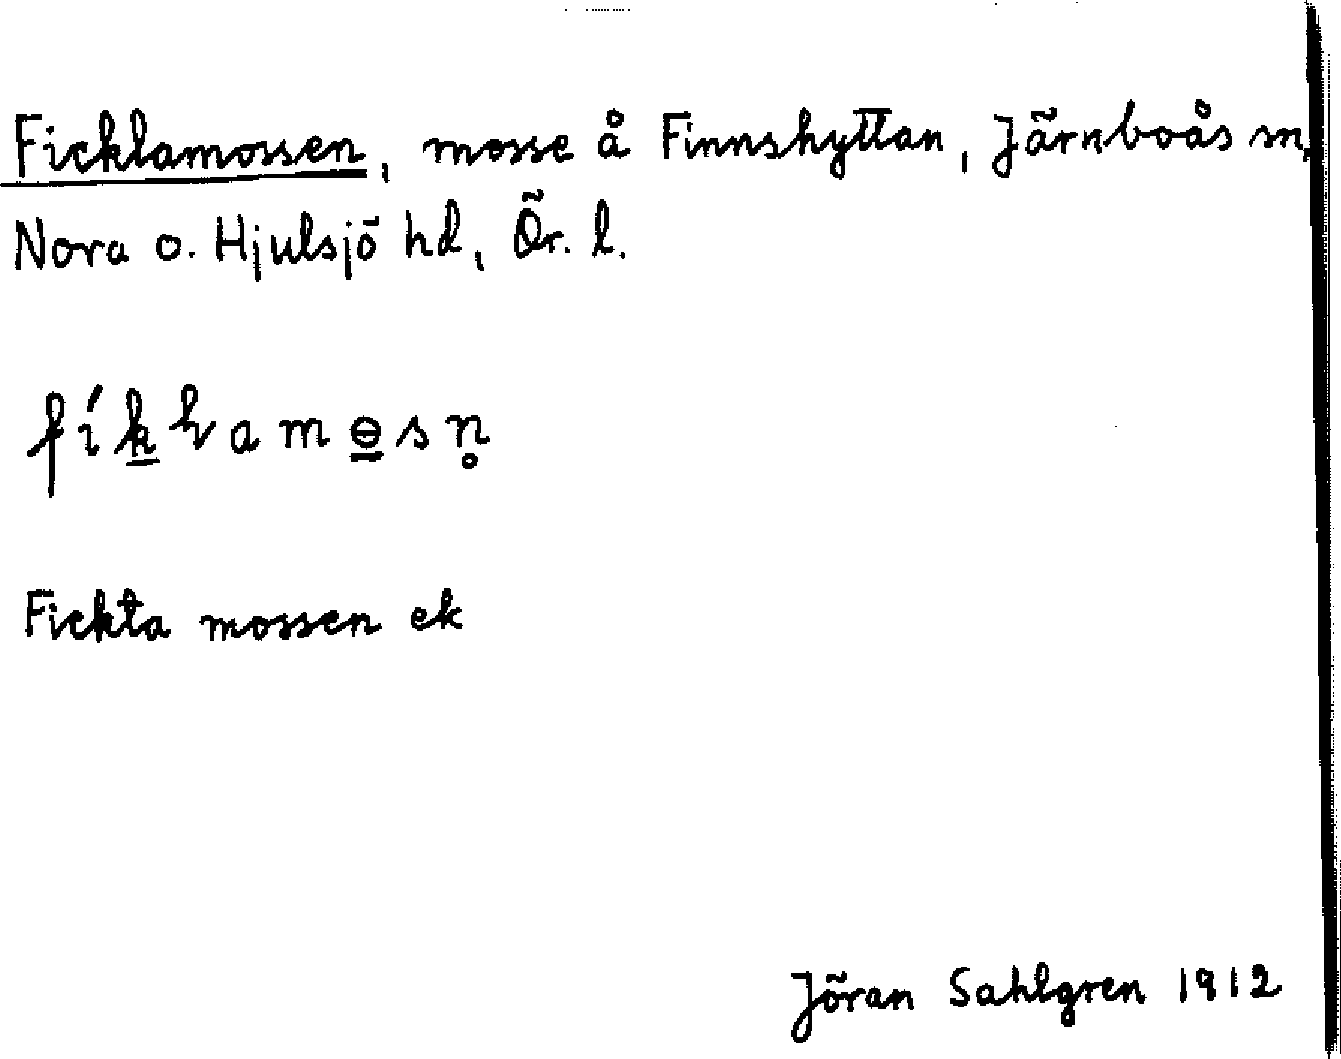 Ficklamossen, mosse å Finnshyttan, Järnboås sn,
Nora o. Hjulsjö hd, Ör. l.
Fickta mossen ek
Jöran Sahlgren 1912